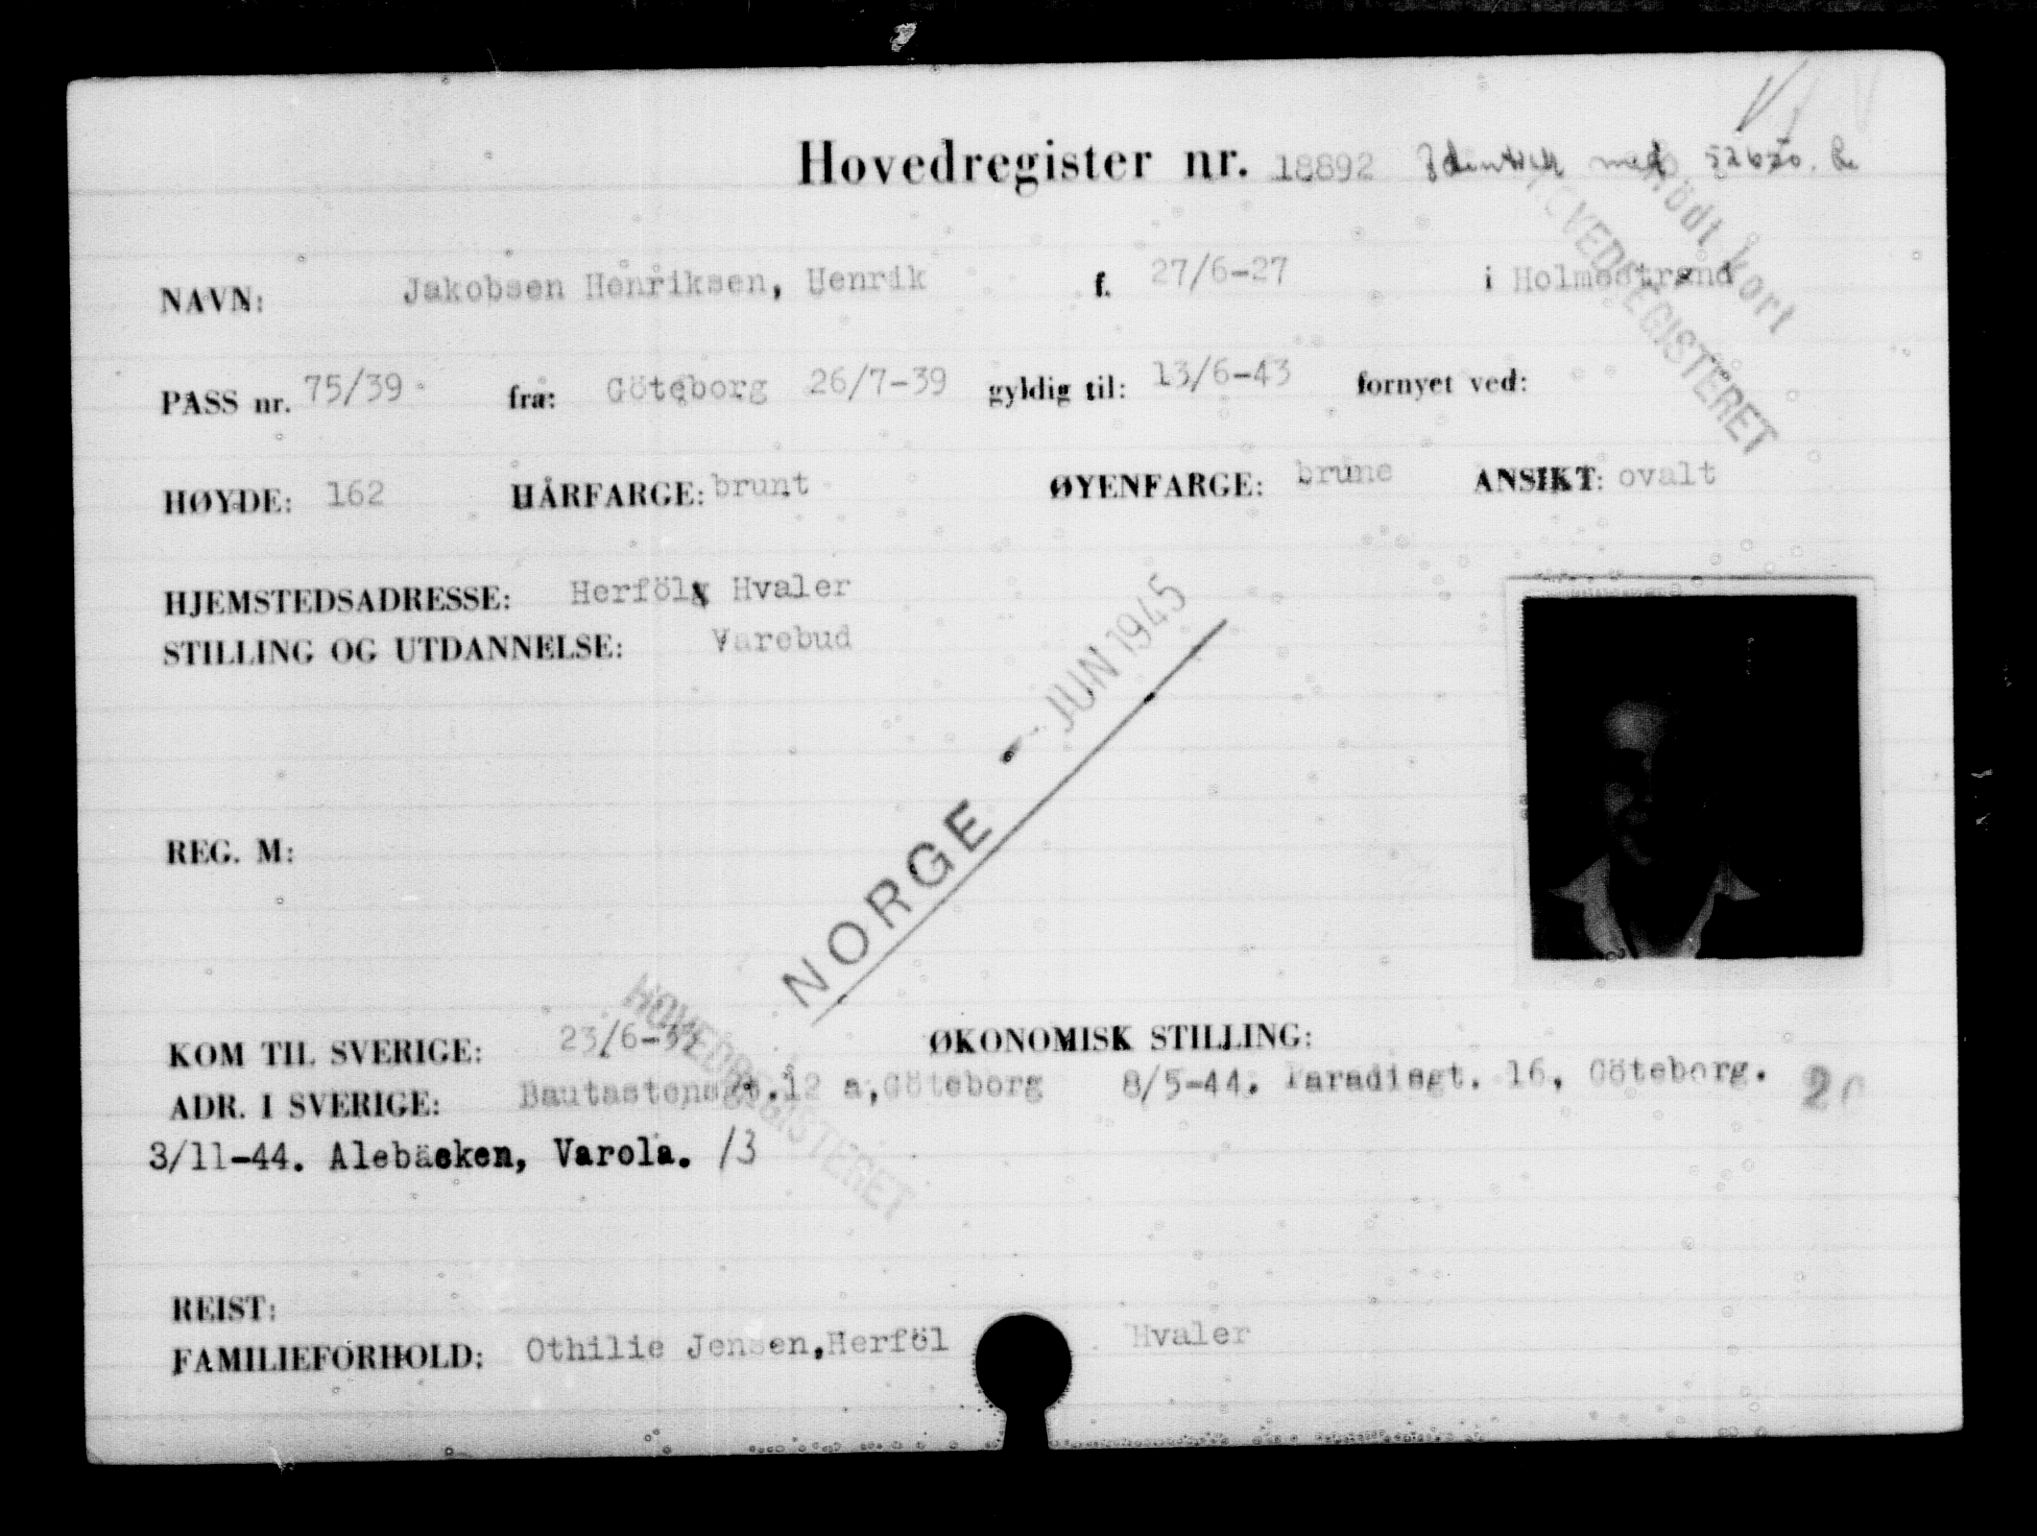 Hovedregister nr. 18892 Identisk med 52650.
Rödt kort
HOVEDREGISTERET
NAVN: Jakobsen Henriksen, Henrik f. 27/6-27 i Holmestrand
PASS nr. 75/39 fra: Göteborg 26/7-39 gyldig til: 13/6-43 fornyet ved:
HØYDE: 162 HÅRFARGE: brunt ØYENFARGE: brune ANSIKT: ovalt
HJEMSTEDSADRESSE: Herföl Hvaler
STILLING OG UTDANNELSE: Varebud
NORGE - JUN 1945
REG. M:
HOVEDREGISTERET
KOM TIL SVERIGE: 23/6- ØKONOMISK STILLING:
ADR. I SVERIGE: Bautastensgt. 12 a, Göteborg 8/5-44. Paradisgt. 16, Göteborg. 20
3/11-44. Alebäcken, Varola. /3
REIST:
FAMILIEFORHOLD: Othilie Jensen, Herföl Hvaler